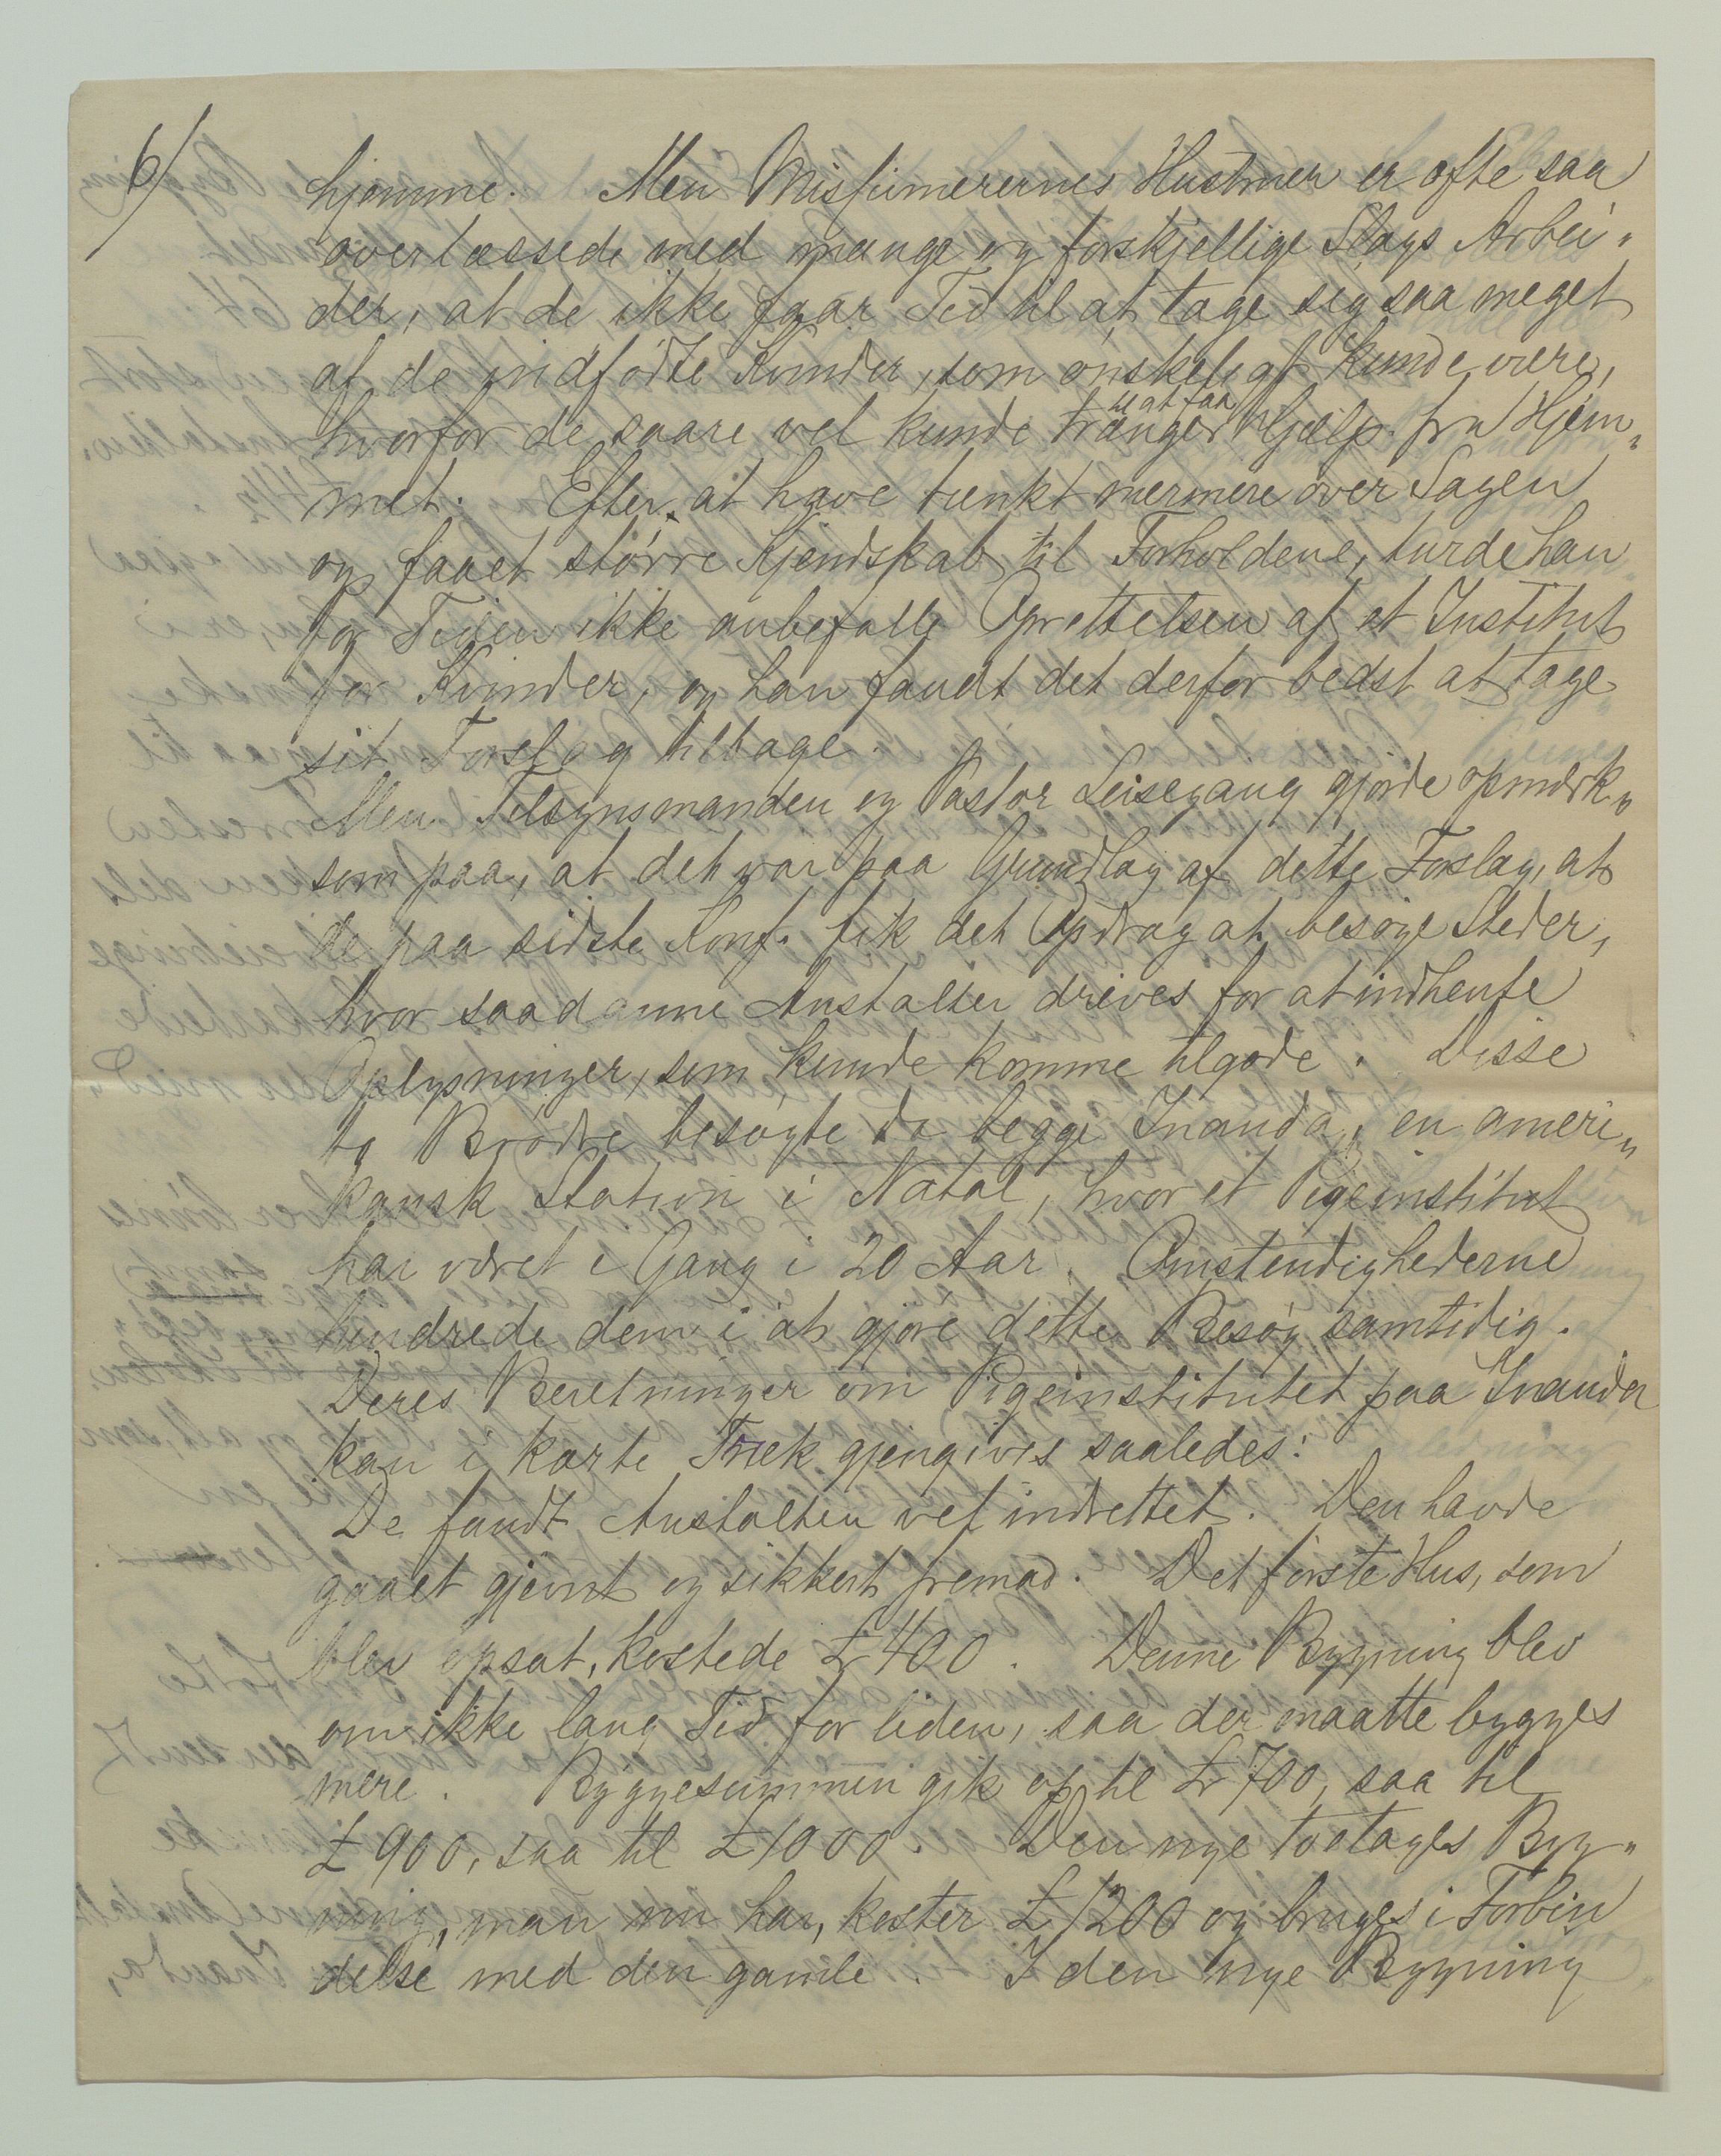 6/
hjemme. Men Missionærernes Hustruer er ofte saa
overlæssede med mange og forskjellige Slags Arbei„
der, at de ikke faar Tid til at tage sig saa meget
af de indfødte Kvinder, som ønskeligt kunde være,
hvorfor de saare vel kunde trænger til at faa Hjælp fra Hjem„
met. Efter at have tænkt nærmere over Sagen
og faaet større Kjendskab til Forholdene, turde han
for Tiden ikke anbefalle Oprettelsen af et Institut
for Kvinder, og han fandt det derfor bedst at tage
sit Forslag tilbage.
Men Tilsynsmanden og Pastor Leisegang gjorde opmærk„
som paa, at det var paa Grundlag af dette Forslag, at
de paa sidste Konf. fik det Opdrag at besøge Steder,
hvor saadanne Anstalter drives for at indhente
Oplysninger, som kunde komme tilgode. Disse
to Brødre besøgte da begge Inanda, en ameri„
kansk Station i Natal, hvor et Pigeinstitut
har været i Gang i 20 Aar. Omstendighederne
hindrede dem i at gjøre dette Besøg samtidig.
Deres Beretninger om Pigeinstitutet paa Inanda
kan i korte Træk gjengives saaledes:
De fandt Anstalten vel indrettet. Den havde
gaaet gjevnt og sikkert fremad. Det første Hus, som
blev opsat, kostede £ 400. Denne Bygning blev
om ikke lang Tid for liden, saa der maatte bygges
mere. Byggesummen gik op til £ 700, saa til
£ 900, saa til £ 1000. Den nye toetages Byg„
ning, man nu har, koster £ 1200 og bruges i Forbin
delse med den gamle. I den nye Bygning